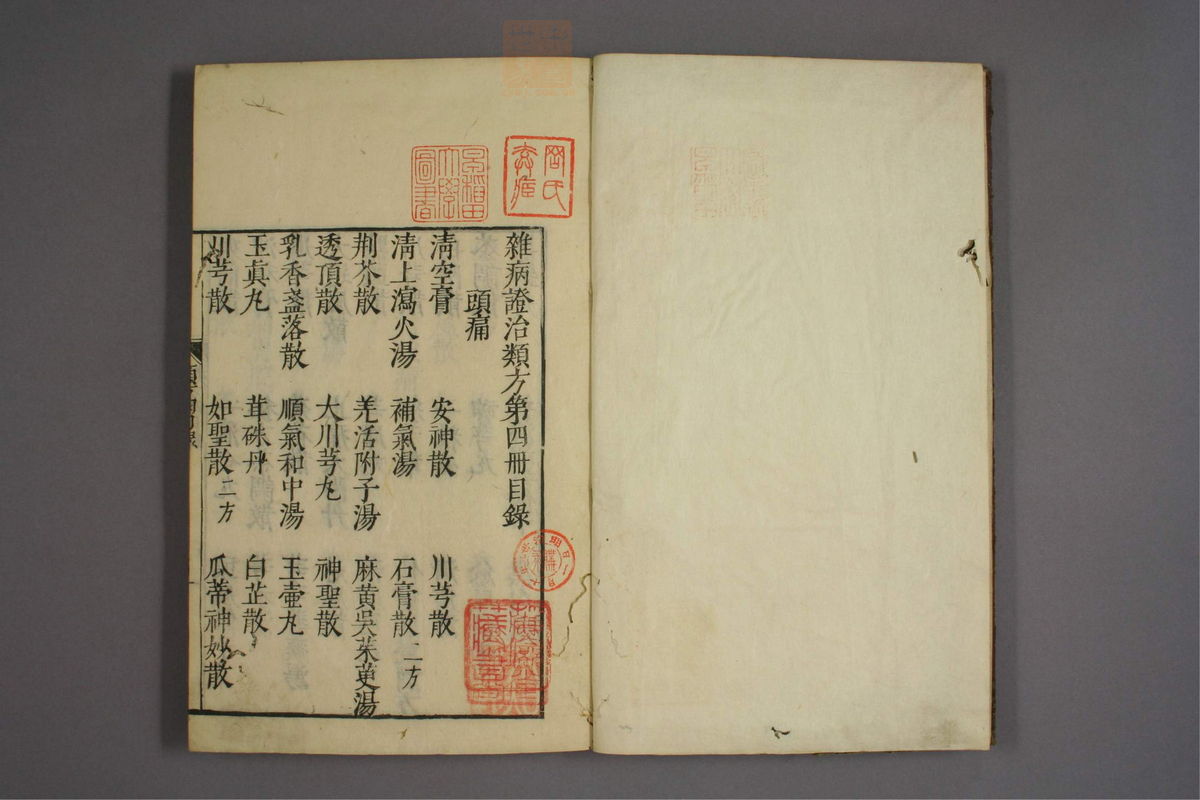 雜病證治類方第四冊目錄
頭痛
淸空膏　安神散　川芎散
淸上瀉火湯　補氣湯　石膏散二方
荆芥散　羌活附子湯　麻黄吳茱萸湯
透頂散　大川芎丸　神聖散
乳香盞落散　順氣和中湯　玉壷丸
玉眞丸　茸硃丹　白芷散
川芎散　如聖散二方　瓜蒂神妙散
早稻田大學圖書